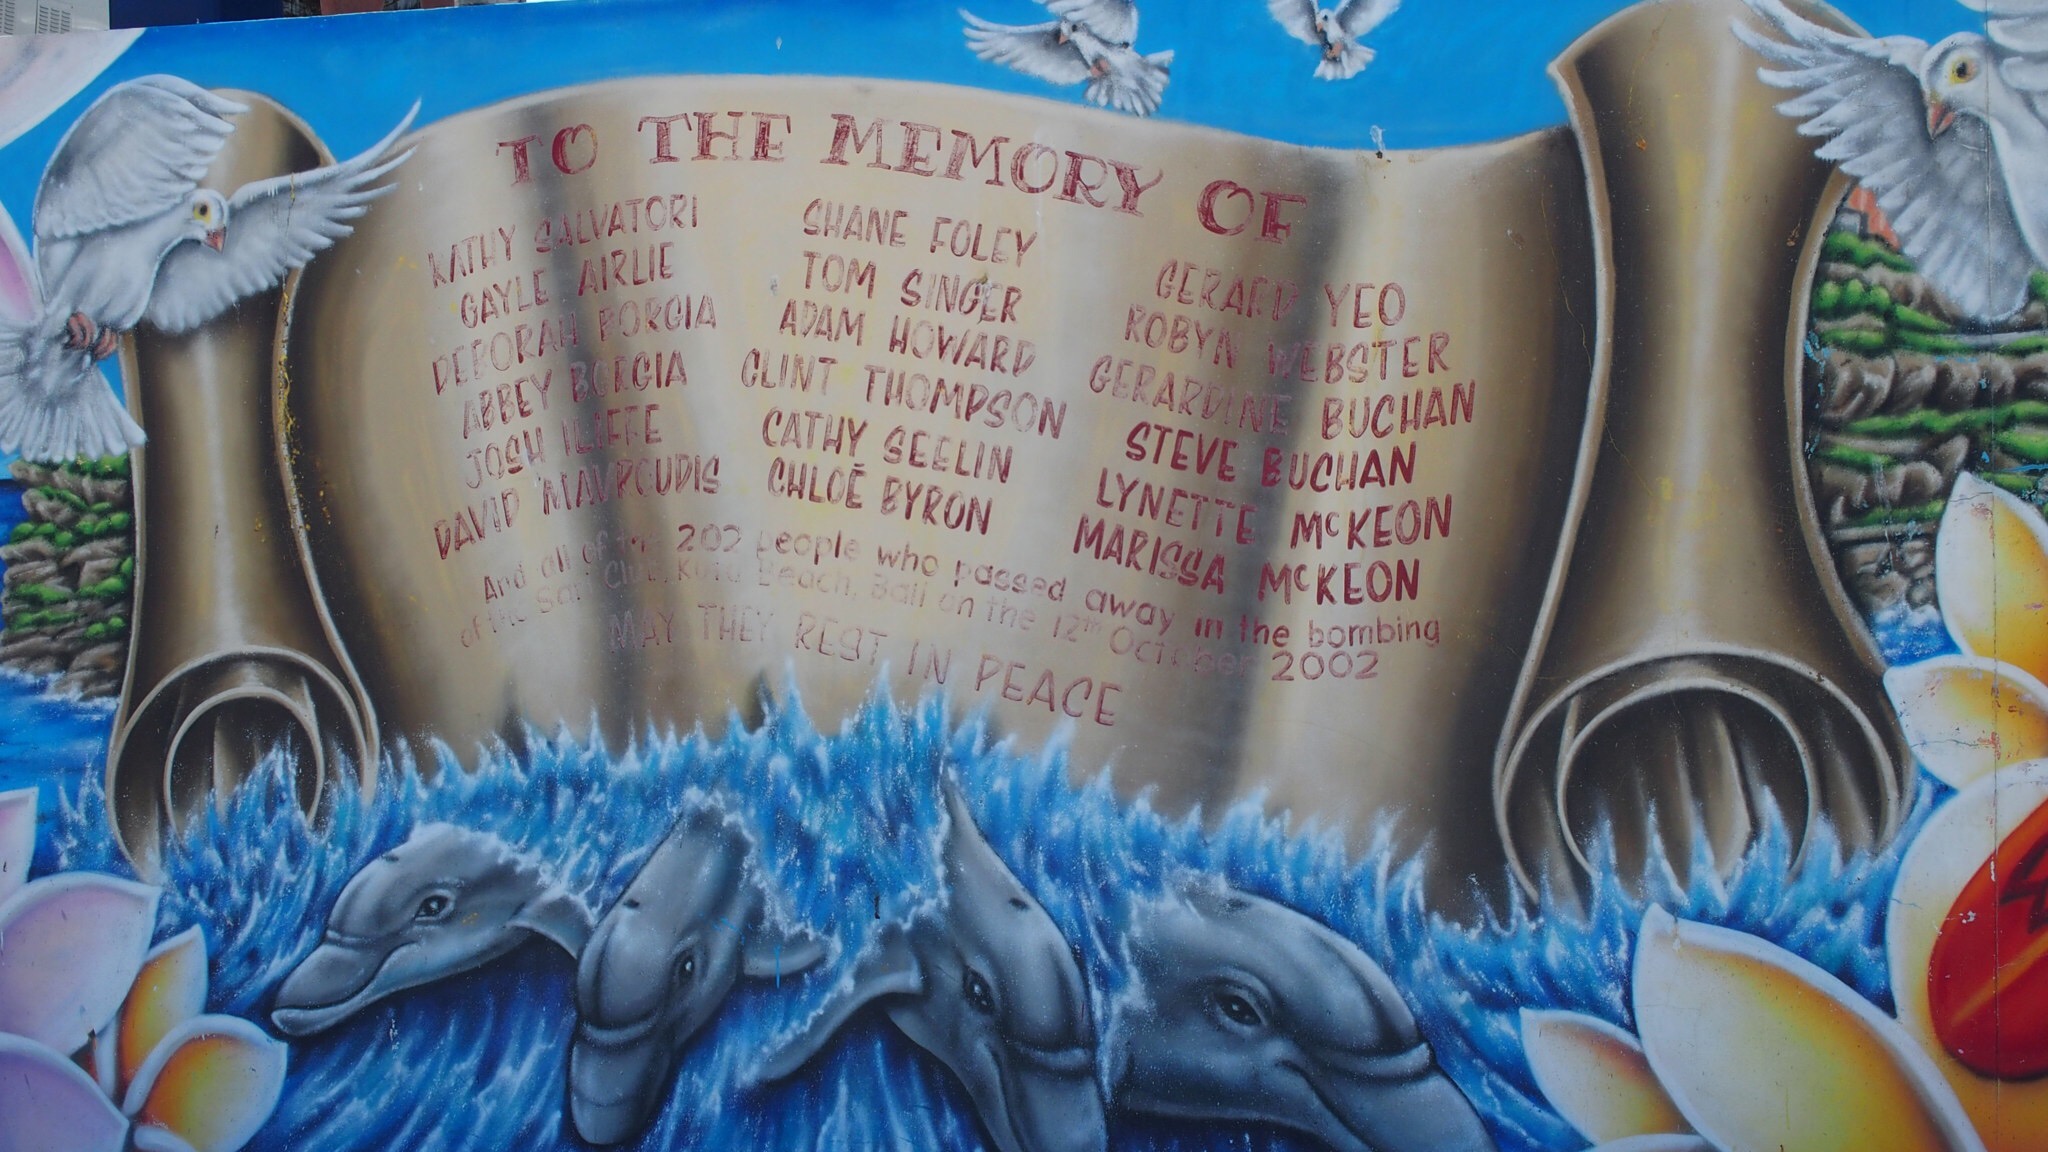 TO THE MEMORY OF
KATHY SALVATORI
GAYLE AIRLIE
DEBORAH BORGIA
ABBEY BORGIA
JOSH ILIFFE
DAVID MAVROUDIS
SHANE FOLEY
TOM SINGER
ADAM HOWARD
CLINT THOMPSON
CATHY SEELIN
CHLOÉ BYRON
GERARD YEO
ROBYN WEBSTER
GERARDINE BUCHAN
STEVE BUCHAN
LYNETTE McKEON
MARISSA McKEON
And all of the 202 people who passed away in the bombing
of the Sari Club, Kuta Beach, Bali on the 12th October 2002
MAY THEY REST IN PEACE